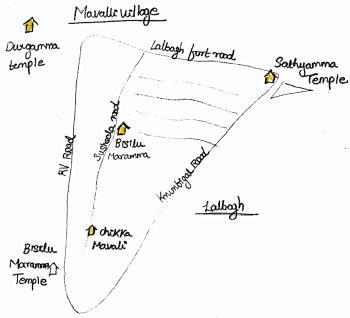 Mavalli village
Durgamma
temple
Lalbagh fort road
Sathyamma
Temple
RV Road
Susheela road
Bisilu
Maramma
Krumbigal Road
Lalbagh
chikka
Mavalli
Bisilu
Maramma
Temple